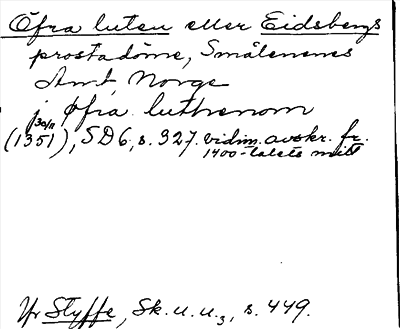 Öfra luten eller Eidsbergs
prostadöme, Smålenenes
Amt, Norge
j øfra luthenom
(1351 30/11), SD 6, s. 327. vidim. avskr. fr.
1400-talets mitt
Jfr Styffe, Sk. u. u.3, s. 449.